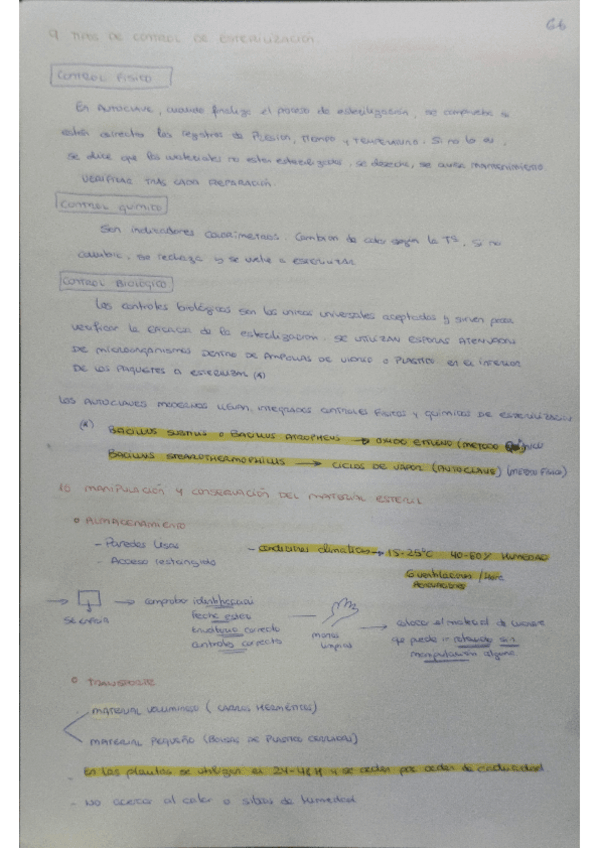 66
9 TIPOS DE CONTROL DE ESTERILIZACIÓN.
CONTROL FISICO
En AUTOCLAVE, cuando finaliza el proceso de esterilización, se comprueba si
están correctos los registros de PRESION, TIEMPO y TEMPERATURA. Si no lo es,
se dice que los materiales no estan esterilizados, se desecha, se avisa MANTENIMIENTO.
VERIFICAR TRAS CADA REPARACIÓN.
CONTROL QUIMICO
Son indicadores COLORIMETROS. Cambian de color según la Tª, si no
cambia, se rechaza y se vuelve a ESTERILIZAR.
CONTROL BIOLÓGICO
Los controles biológicos son los unicos universales aceptados y sirven para
verificar la EFICACIA de la esterilización. SE UTILIZAN ESPORAS ATENUADAS
DE MICROORGANISMOS DENTRO DE AMPOLLAS DE VIDRIO O PLASTICO en el INTERIOR
DE LOS PAQUETES A ESTERILIZAR (*)
LOS AUTOCLAVES MODERNOS LLEVAN INTEGRADOS CONTROLES FISICOS Y QUIMICOS DE ESTERILIZACION
(*) BACILLUS SUBTILIS O BACILLUS ATROPHEUS → OXIDO ETILENO (METODO
BACILLUS STEAROTHERMOPHILUS → CICLOS DE VAPOR (AUTOCLAVE) (METODO FISICO)
10 MANIPULACIÓN Y CONSERVACIÓN DEL MATERIAL ESTERIL
ALMACENAMIENTO
- Paredes lisas
- Acceso restringido
- condiciones climaticas → 15-25ºC 40-60% HUMEDAD
6 ventilaciones /
→ se enfria → comprobar identificación
fecha ester
envoltorio correcto
controles correcto
manos limpias
→ colocar el material de manera
que pueda ir retirando sin
manipulación alguna
TRANSPORTE
MATERIAL VOLUMINOSO (CARROS HERMÉTICOS)
MATERIAL PEQUEÑO (BOLSAS DE PLASTICO CERRADAS)
- En las plantas se utilizan en 24-48 H y se ceden por orden de caducidad.
- No acercar al calor o sitios de humedad.